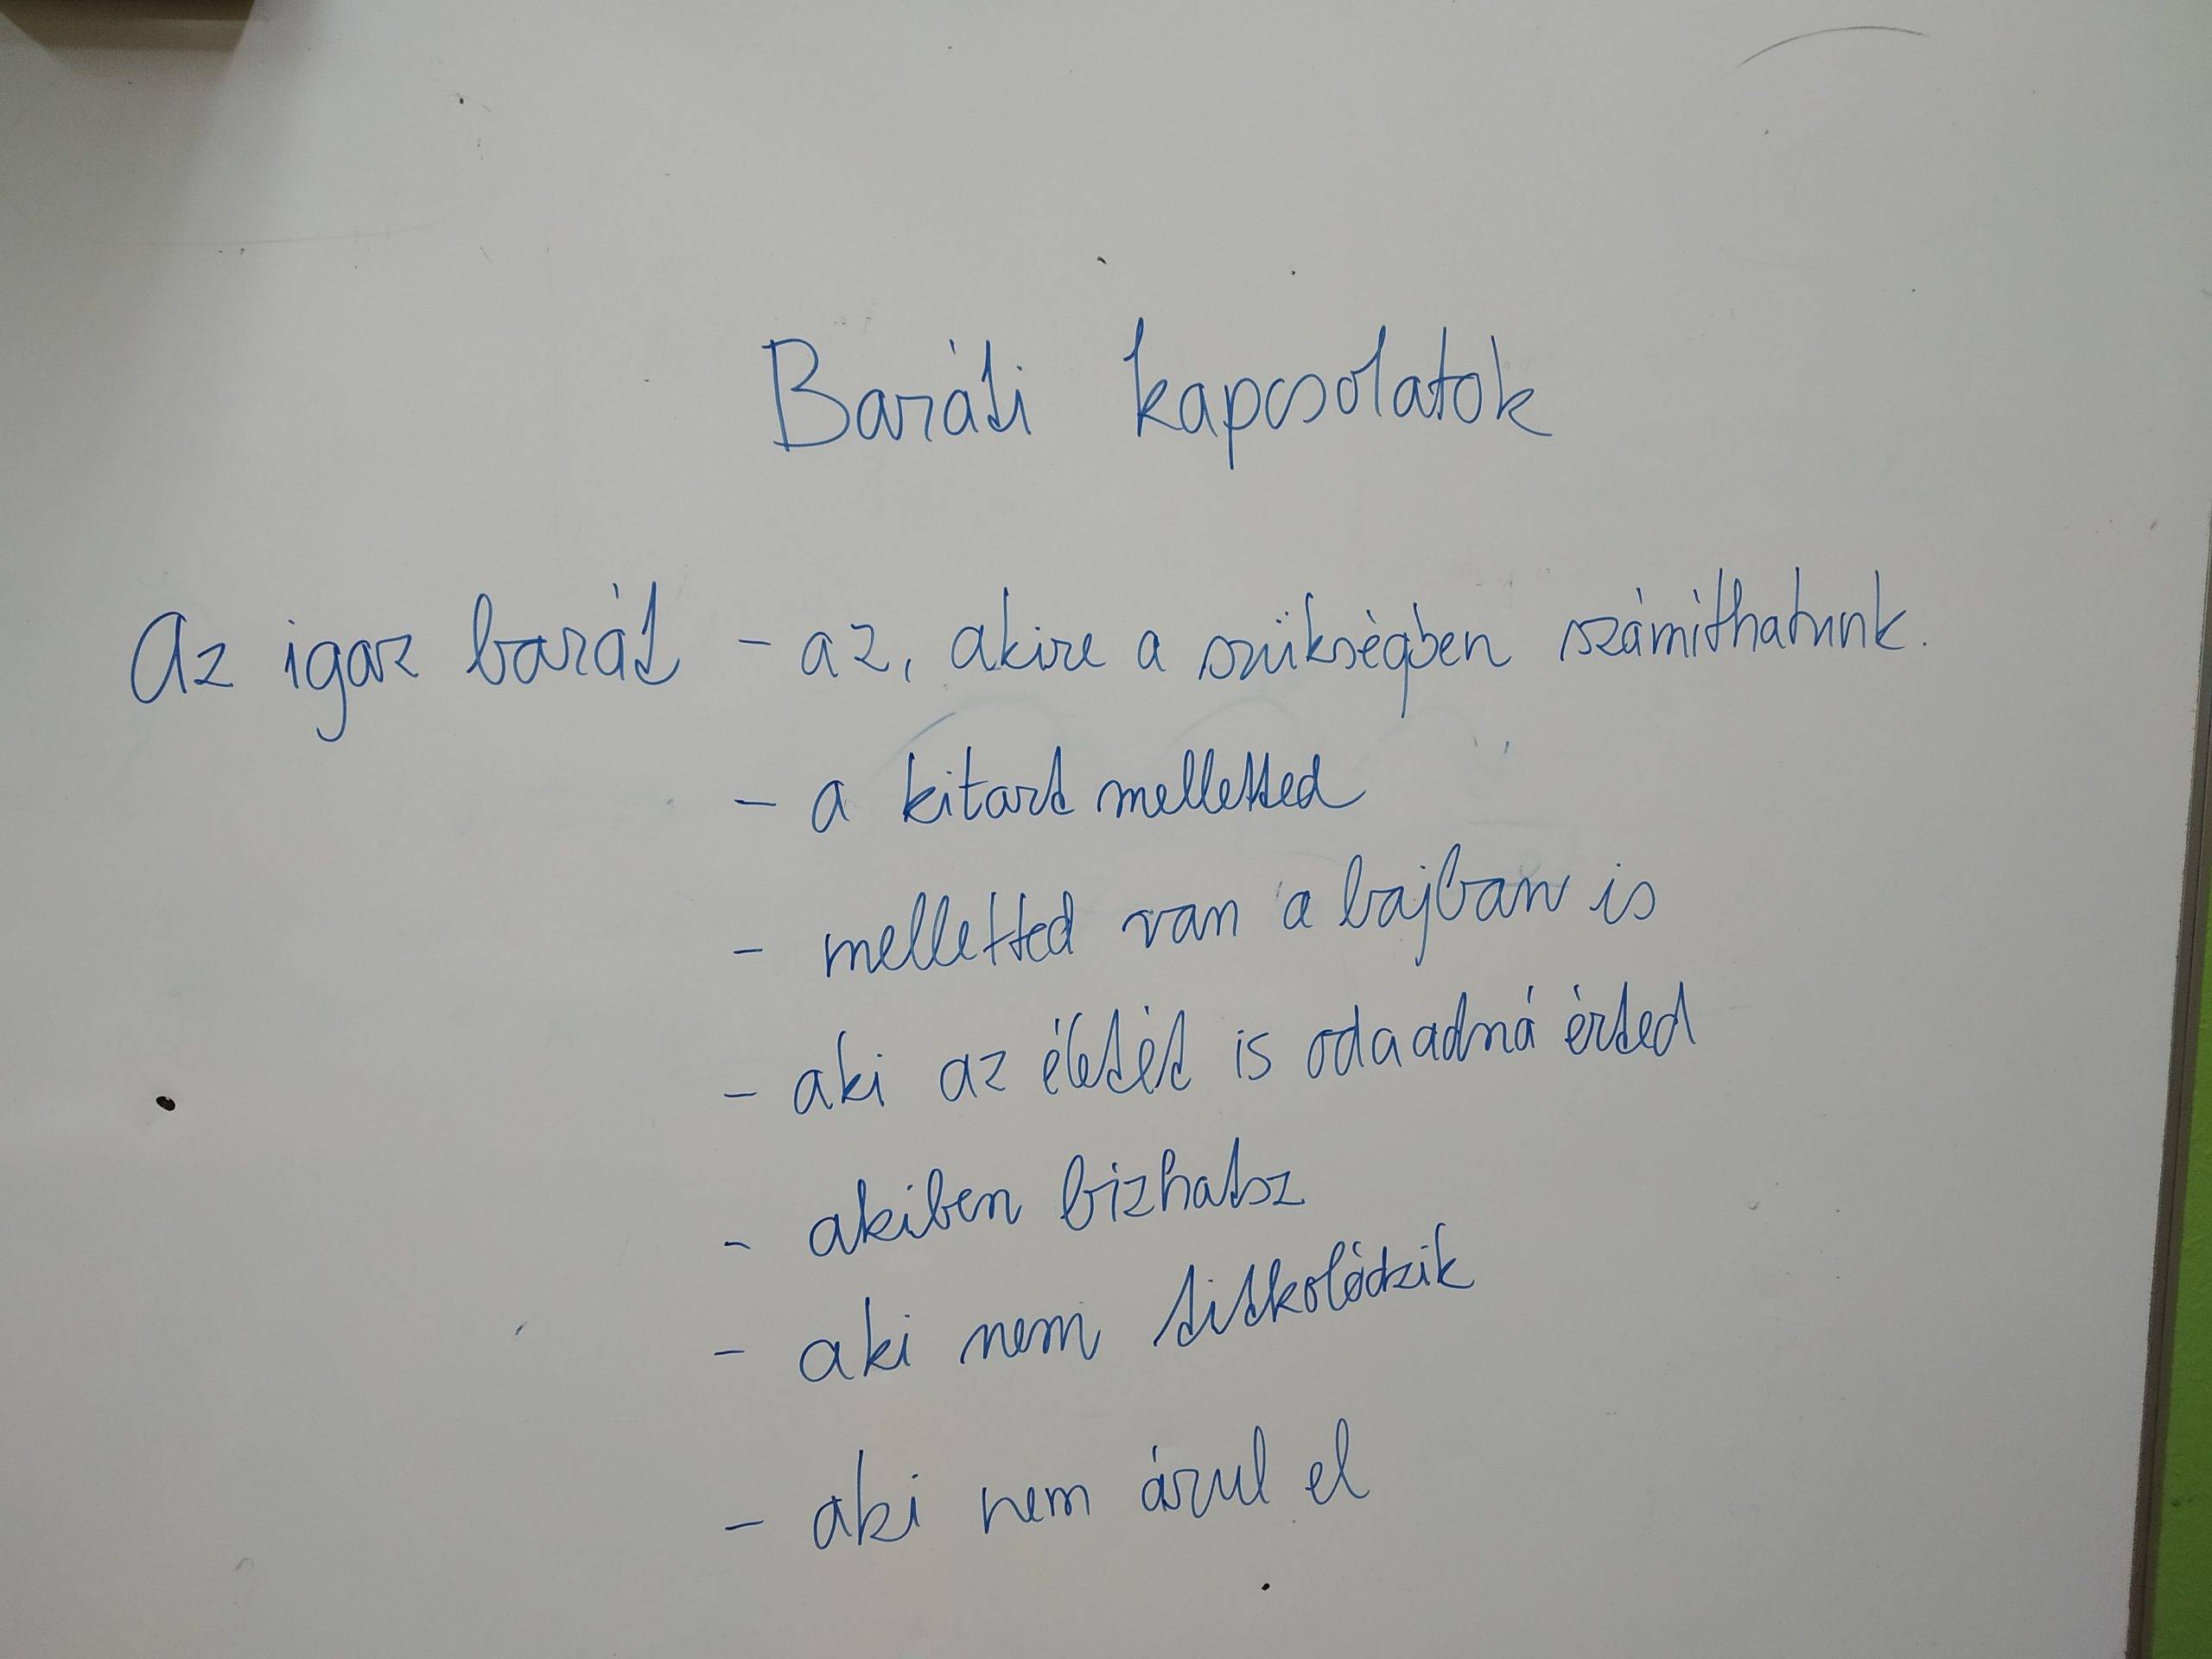 Baráti kapcsolatok
Az igaz barát - az, akire a szükségben számíthatunk.
- a kitart melletted
- melletted van a bajban is
- aki az életét is odaadná érted
- akiben bízhatsz
- aki nem titkolódzik
- aki nem árul el